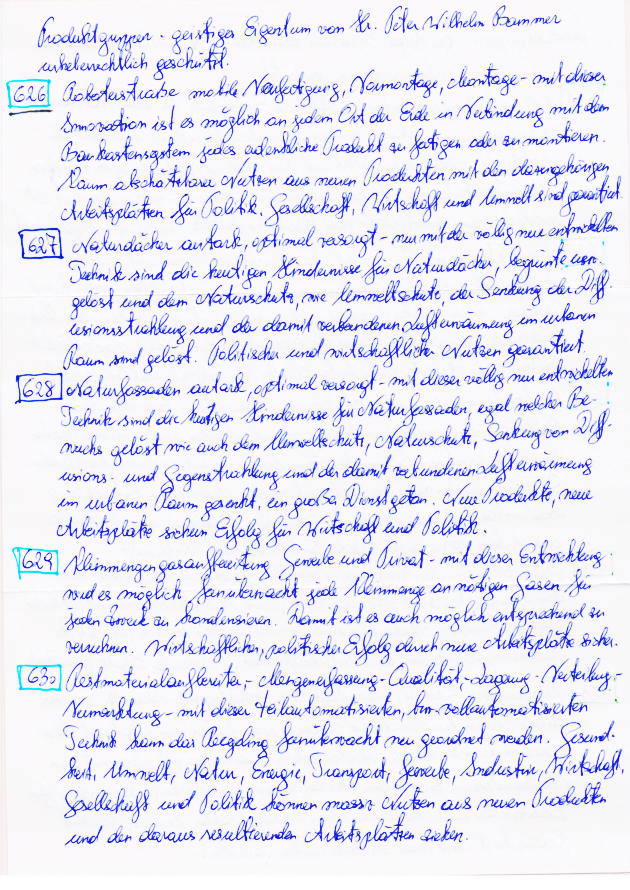 Produktgruppen - geistiges Eigentum von Hr. Peter Wilhelm Bammer
urheberrechtlich geschützt.
626 Roboterstraße mobile Neufertigung, Vormontage, Montage - mit dieser
Innovation ist es möglich an jedem Ort der Erde in Verbindung mit dem
Baukastensystem jedes erdenkliche Produkt zu fertigen oder zu montieren.
Kaum abschätzbarer Nutzen aus neuen Produkten mit den dazugehörigen
Arbeitsplätzen für Politik, Gesellschaft, Wirtschaft und Umwelt sind garantiert.
627 Naturdächer autark, optimal versorgt - nur mit der völlig neu entwickelten
Technik sind die heutigen Hindernisse für Naturdächer, begrünte
gelöst und dem Naturschutz, wie Umweltschutz, der Senkung der Diff-
usionsstrahlung und der damit verbundenen Lufterwärmung im urbanen
Raum sind gelöst. Politischer und wirtschaftlicher Nutzen garantiert.
628 Naturfassaden autark, optimal versorgt - mit dieser völlig neu entwickelten
Technik sind die heutigen Hindernisse für Naturfassaden, egal welcher Be-
wuchs gelöst wie auch dem Umweltschutz, Naturschutz, Senkung von Diff-
usions- und Gegenstrahlung und der damit verbundenen Lufterwärmung
im urbanen Raum gesenkt, ein großer Dienst getan. Neue Produkte, neue
Arbeitsplätze sichern Erfolg für Wirtschaft und Politik.
629 Kleinmengengasaufbereitung Gewerbe und Privat - mit dieser Entwicklung
wird es möglich fanübernacht jede Kleinmenge an nötigen Gasen für
jeden Zweck zu kondensieren. Damit ist es auch möglich entsprechend zu
verrechnen. Wirtschaftlicher, politischer Erfolg durch neue Arbeitsplätze sicher.
630 Restmaterialaufbereiter,- Mengenerfassung- Qualität,- Lagerung - Verteilung,-
Vermarktung - mit dieser teilautomatisierten, bzw. vollautomatisierten
Technik kann das Recycling fanübernacht neu geordnet werden. Gesund-
heit, Umwelt, Natur, Energie, Transport, Gewerbe, Industrie, Wirtschaft,
Gesellschaft und Politik können massiv Nutzen aus neuen Produkten
und den daraus resultierenden Arbeitsplätzen ziehen.